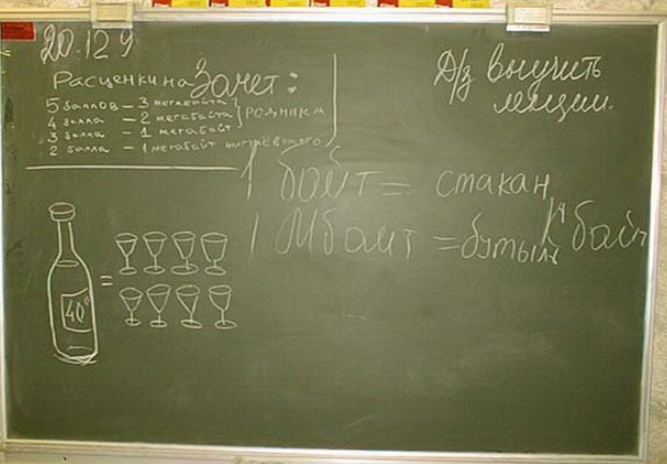 20.12 9
Расценки на Зачет:
5 баллов - 3 мегабайта
4 балла - 2 мегабайта } Родника
3 балла - 1 мегабайт
2 балла - 1 мегабайт
Д/з выучить
лекции.
1 байт = стакан
1 Мбайт = бутылк байт
40°
=